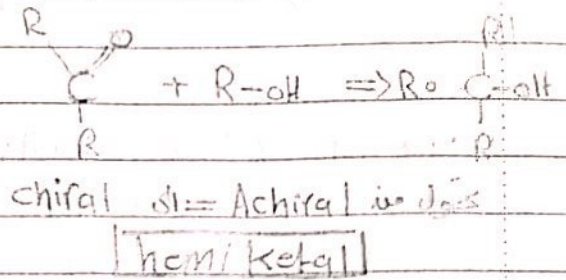 R O
C + R-OH => RO C-OH
R R
R
chiral الى = Achiral من تتحول
hemi Ketal